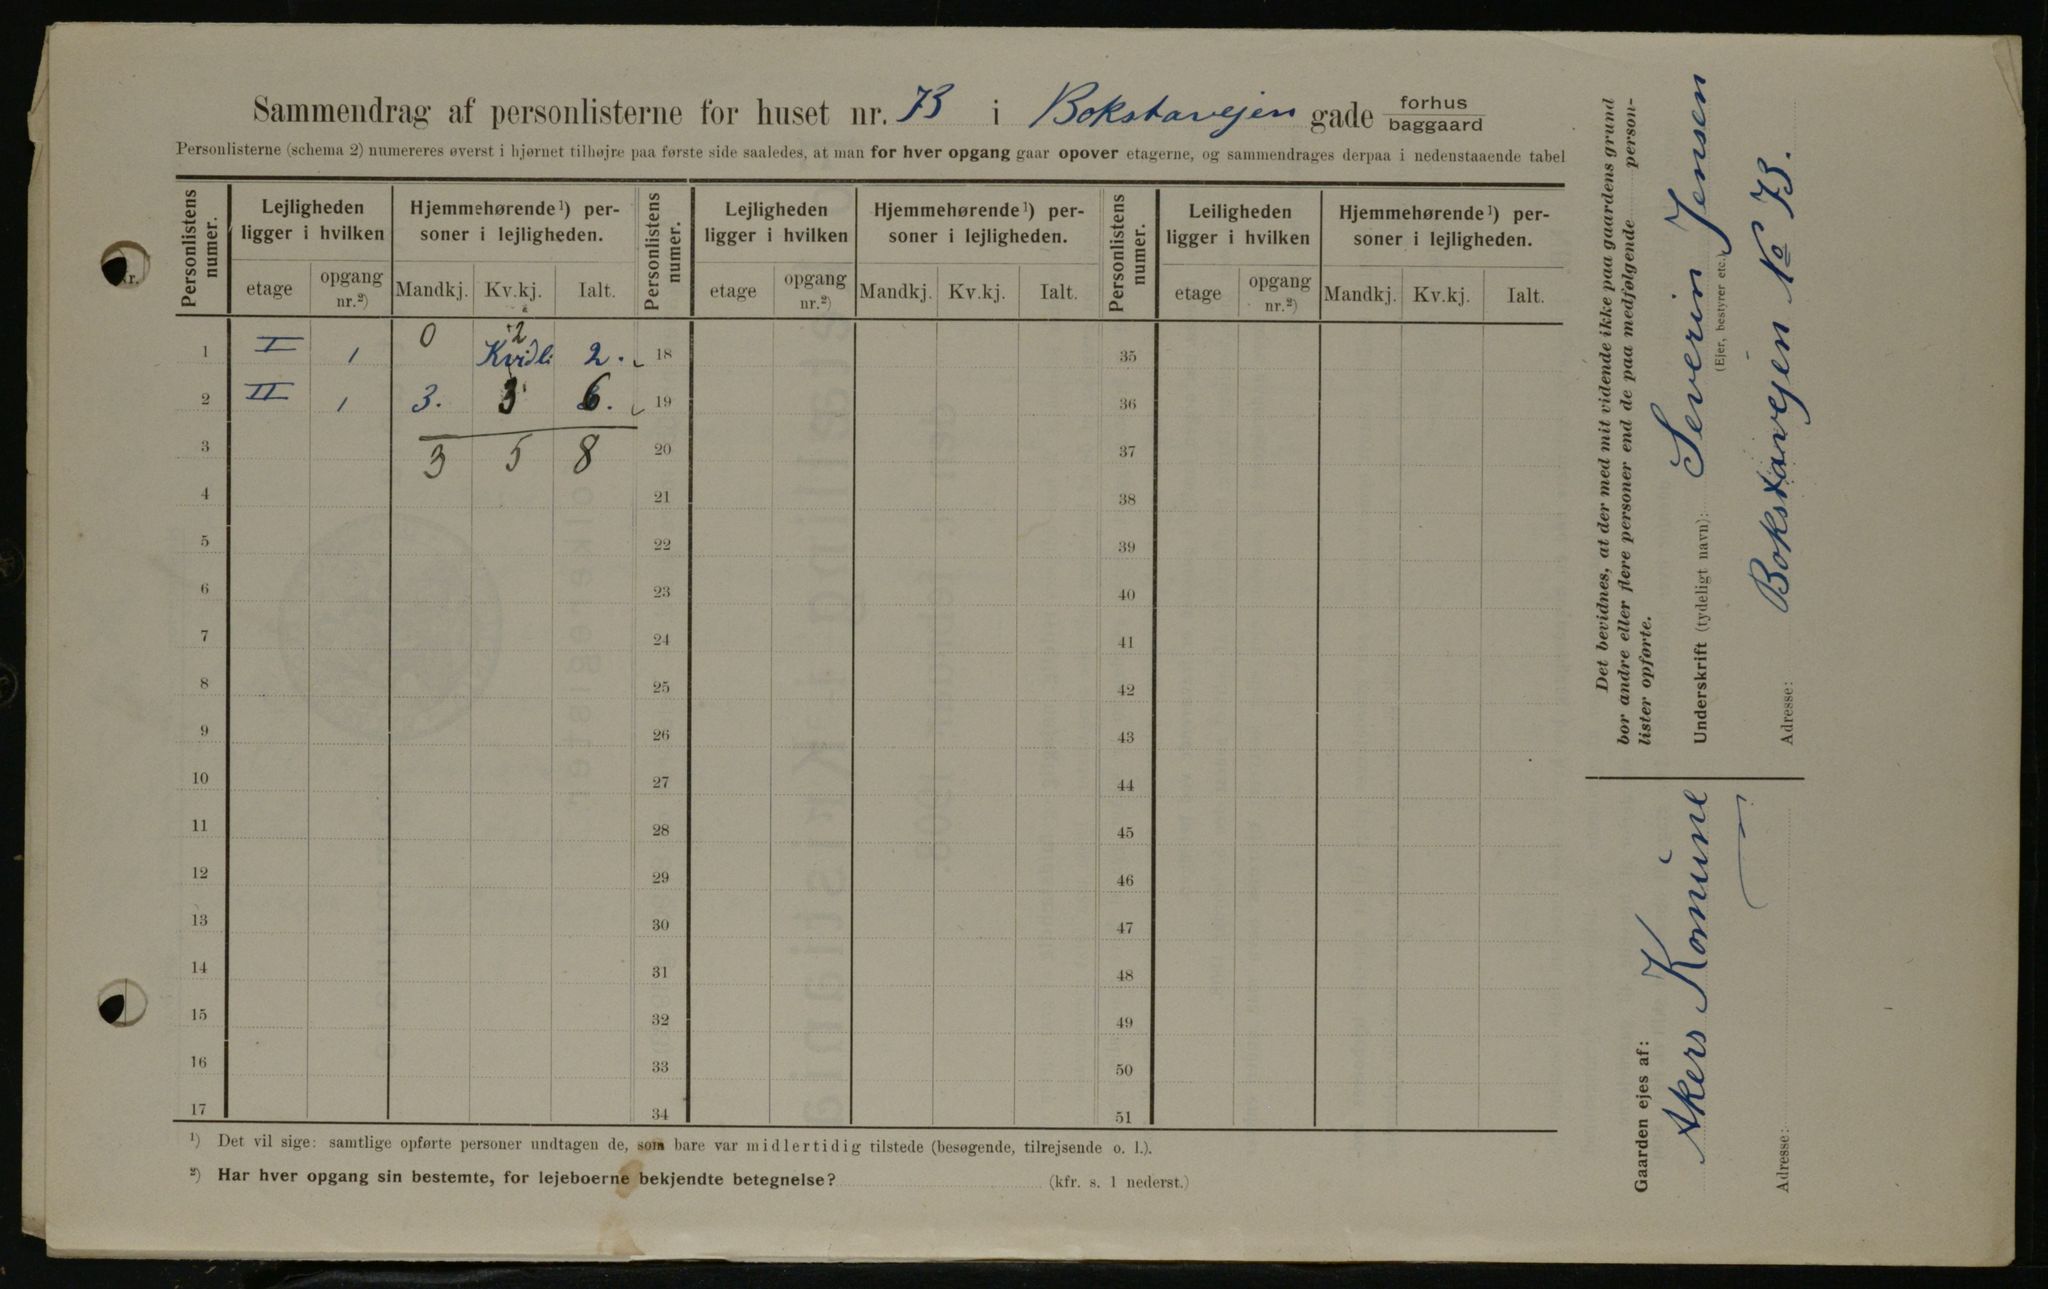 Sammendrag af personlisterne for huset nr. 7B i Bokstavejen gade forhus baggaard
Personlisterne (schema 2) numereres øverst i hjørnet tilhøjre paa første side saaledes, at man for hver opgang gaar opover etagerne, og sammendrages derpaa i nedenstaaende tabel
Personlistens numer. Lejligheden ligger i hvilken Hjemmehørende¹) personer i lejligheden. Personlistens numer. Lejligheden ligger i hvilken Hjemmehørende¹) personer i lejligheden. Personlistens numer. Leiligheden ligger i hvilken Hjemmehørende¹) personer i lejligheden.
etage opgang nr.²) Mandkj. Kv.kj. Ialt. etage opgang nr.²) Mandkj. Kv.kj. Ialt. etage opgang nr.²) Mandkj. Kv.kj. Ialt.
1 I 1 0 2 2. 18 35
2 II 1 3. 3 6. 19 36
3 3 5 8 20 37
4 21 38
5 22 39
6 23 40
7 24 41
8 25 42
9 26 43
10 27 44
11 28 45
12 29 46
13 30 47
14 31 48
15 32 49
16 33 50
17 34 51
¹) Det vil sige: samtlige opførte personer undtagen de, som bare var midlertidig tilstede (besøgende, tilrejsende o. l.).
²) Har hver opgang sin bestemte, for lejeboerne bekjendte betegnelse? (kfr. s. 1 nederst.)
Det bevidnes, at der med mit vidende ikke paa gaardens grund
bor andre eller flere personer end de paa medfølgende person-
lister opførte.
Underskrift (tydeligt navn): Severin Jensen
(Ejer, bestyrer etc.)
Adresse: Bokstavejen No 7B.
Gaarden ejes af:
Akers Komune
Adresse: